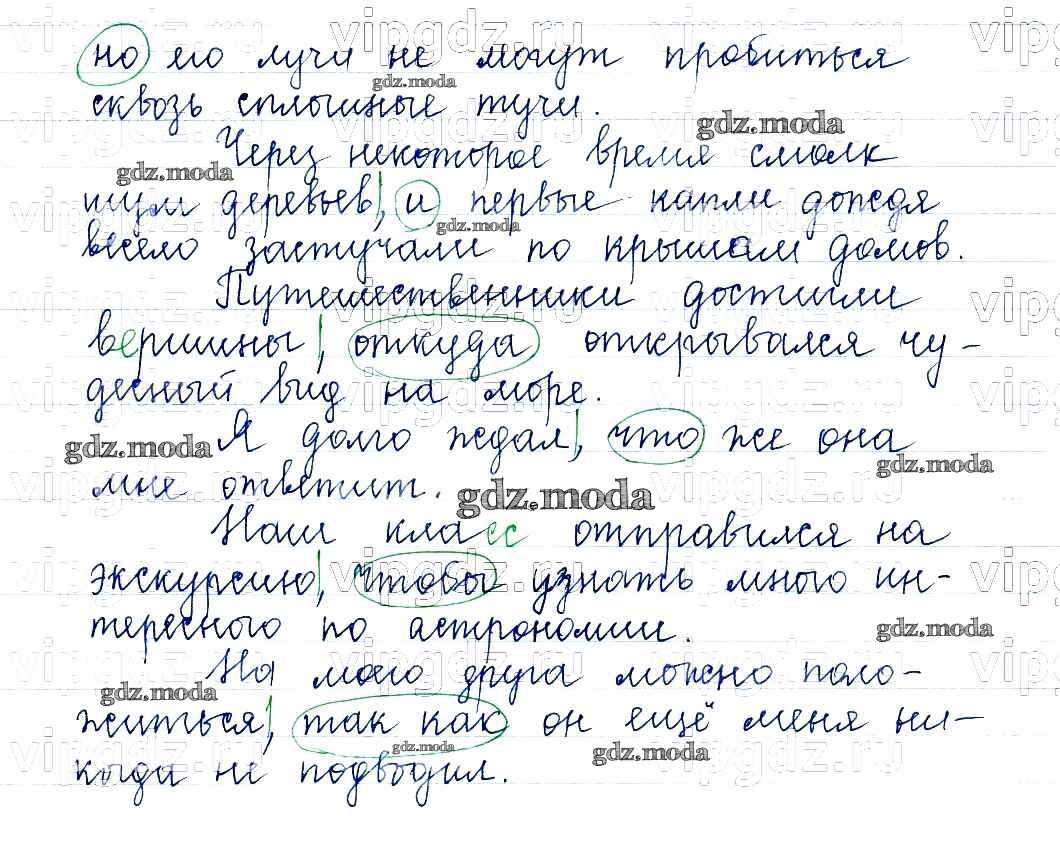 но его лучи не могут пробиться
сквозь сплошные тучи.
Через некоторое время смолк
шум деревьев, и первые капли дождя
весело застучали по крышам домов.
Путешественники достигли
вершины, откуда открывался чу-
десный вид на море.
Я долго ждал, что же она
мне ответит.
Наш класс отправился на
экскурсию, чтобы узнать много ин-
тересного по астрономии.
На моего друга можно поло-
житься, так как он ещё меня ни-
когда не подводил.